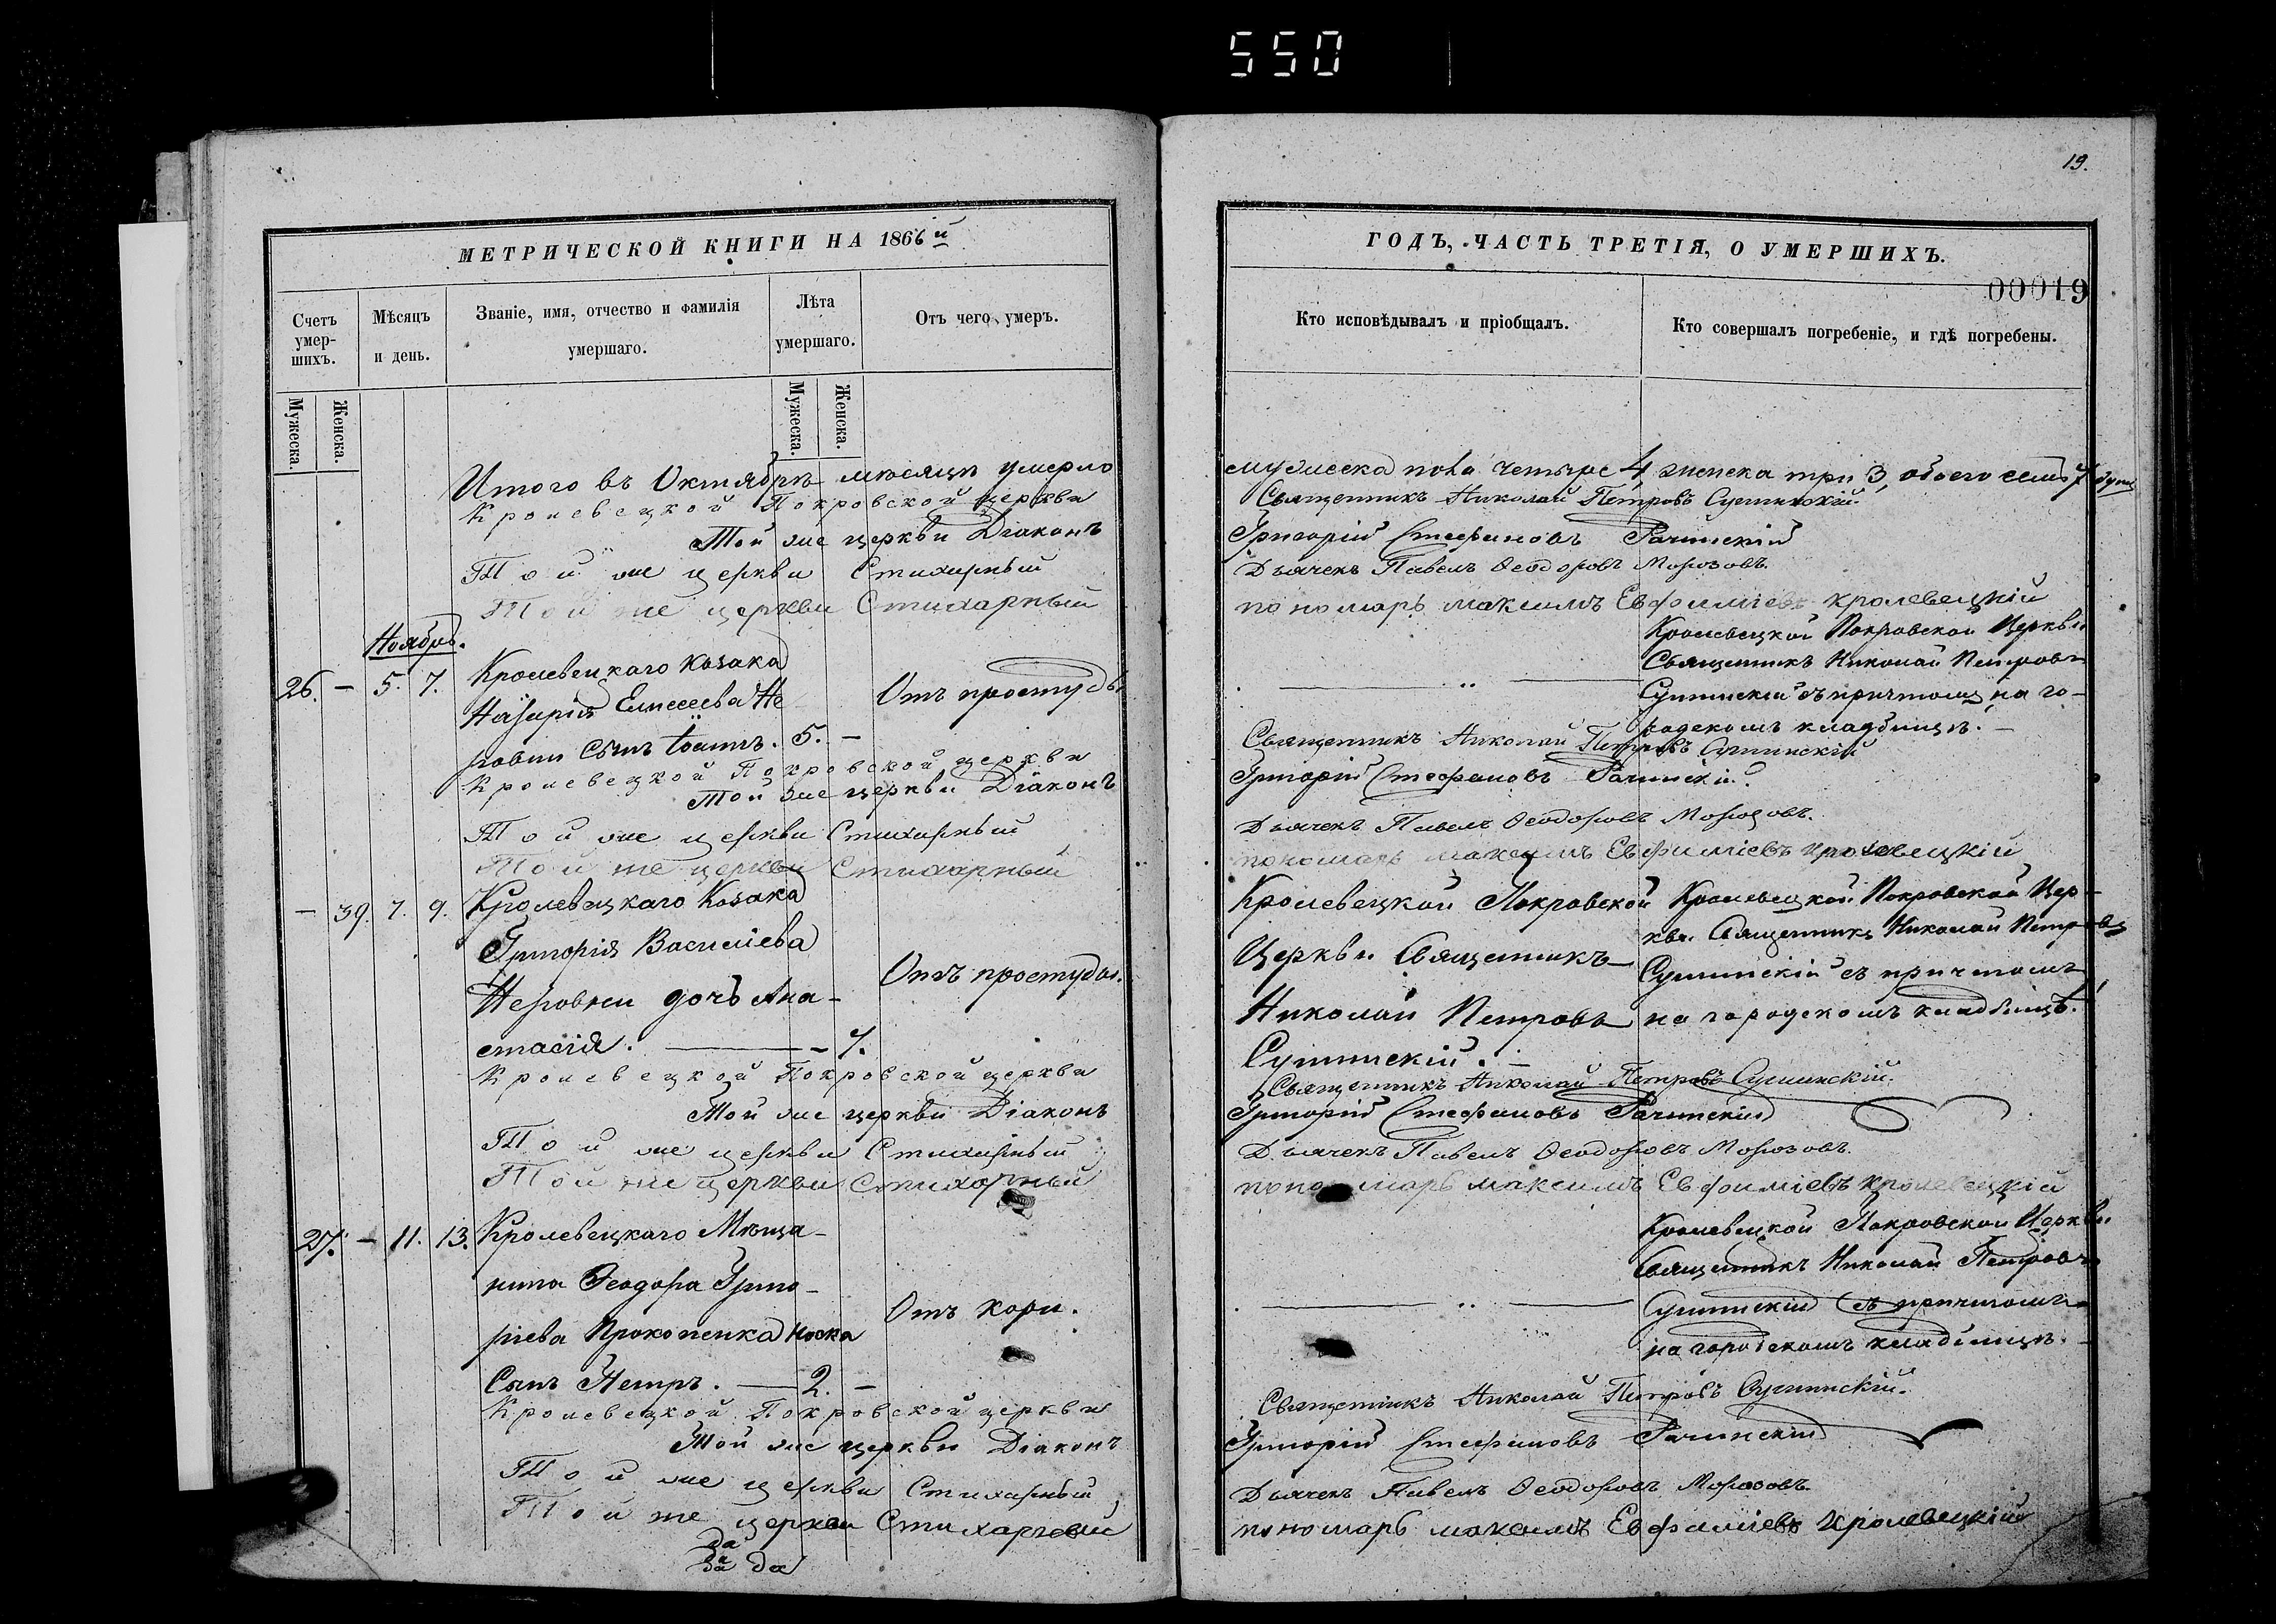 550
19.
МЕТРИЧЕСКОЙ КНИГИ НА 1866й
Счетъ умер-шихъ.
Мѣсяцъ и день.
Званіе, имя, отчество и фамилія умершаго.
Лѣта умершаго.
Отъ чего умеръ.
Мужеска.
Женска.
Мужеска.
Женска.
Итого въ Октябрѣ мѣсяцѣ умерло
Кролевецкой Покровской церкви
Той же церкви Діаконъ
Той же церкви Стихарный
Той же церкви Стихарный
Ноябрь.
26. – 5. 7. Кролевецкаго Козака
Назарія Елисеева Не
ровни Сынъ Іоаннъ. 5. –
Отъ простуды
Кролевецкой Покровской церкви
Той же церкви Діаконъ
Той же церкви Стихарный
Той же церкви Стихарный
– 39. 7. 9. Кролевецкаго Козака
Григорія Василіева
Неровни дочь Ана-
стасія. – 7.
Отъ простуды.
Кролевецкой Покровской церкви
Той же церкви Діаконъ
Той же церкви Стихарный
Той же церкви Стихарный
27. – 11. 13. Кролевецкаго Мѣща-
нина Феодора Григо-
ріева Прокопенка Носка
Сынъ Петръ. – 2. –
Отъ кори.
Кролевецкой Покровской церкви
Той же церкви Діаконъ
Той же церкви Стихарный
Той же церкви Стихарный
да
да да
ГОДЪ, ЧАСТЬ ТРЕТІЯ, О УМЕРШИХЪ.
00019
Кто исповѣдывалъ и пріобщалъ.
Кто совершалъ погребеніе, и гдѣ погребены.
мужеска пола четыре 4, женска три 3, обоего семь 7 душ
Священникъ Николай Петровъ
Григорій Стефановъ Рачинскій
Дьячекъ Павелъ Ѳеодоровъ Морозовъ.
пономарь максимъ Евфиміевъ кролевецкій
Кролевецкой Покровской Церкви
Священникъ Николай Петровъ
съ причтомъ на го-
родскомъ кладбищѣ. –
Священникъ Николай Петровъ
Григорій Стефановъ Рачинскій.
Дьячекъ Павелъ Ѳеодоровъ Морозовъ.
пономарь максимъ Евфиміевъ кролевецкій
Кролевецкой Покровской
Церкви Священникъ
Николай Петровъ
Кролевецкой Покровской Цер-
кви Священникъ Николай Петровъ
съ причтомъ
на городскомъ кладбищѣ.
Священникъ Николай Петровъ
Григорій Стефановъ Рачинскій
Дьячекъ Павелъ Ѳеодоровъ Морозовъ.
пономарь максимъ Евфиміевъ кролевецкій
Кролевецкой Покровской Церкви
Священникъ Николай Петровъ
съ причтомъ
на городскомъ кладбищѣ. –
Священникъ Николай Петровъ
Григорій Стефановъ Рачинскій
Дьячекъ Павелъ Ѳеодоровъ Морозовъ.
пономарь максимъ Евфиміевъ кролевецкій